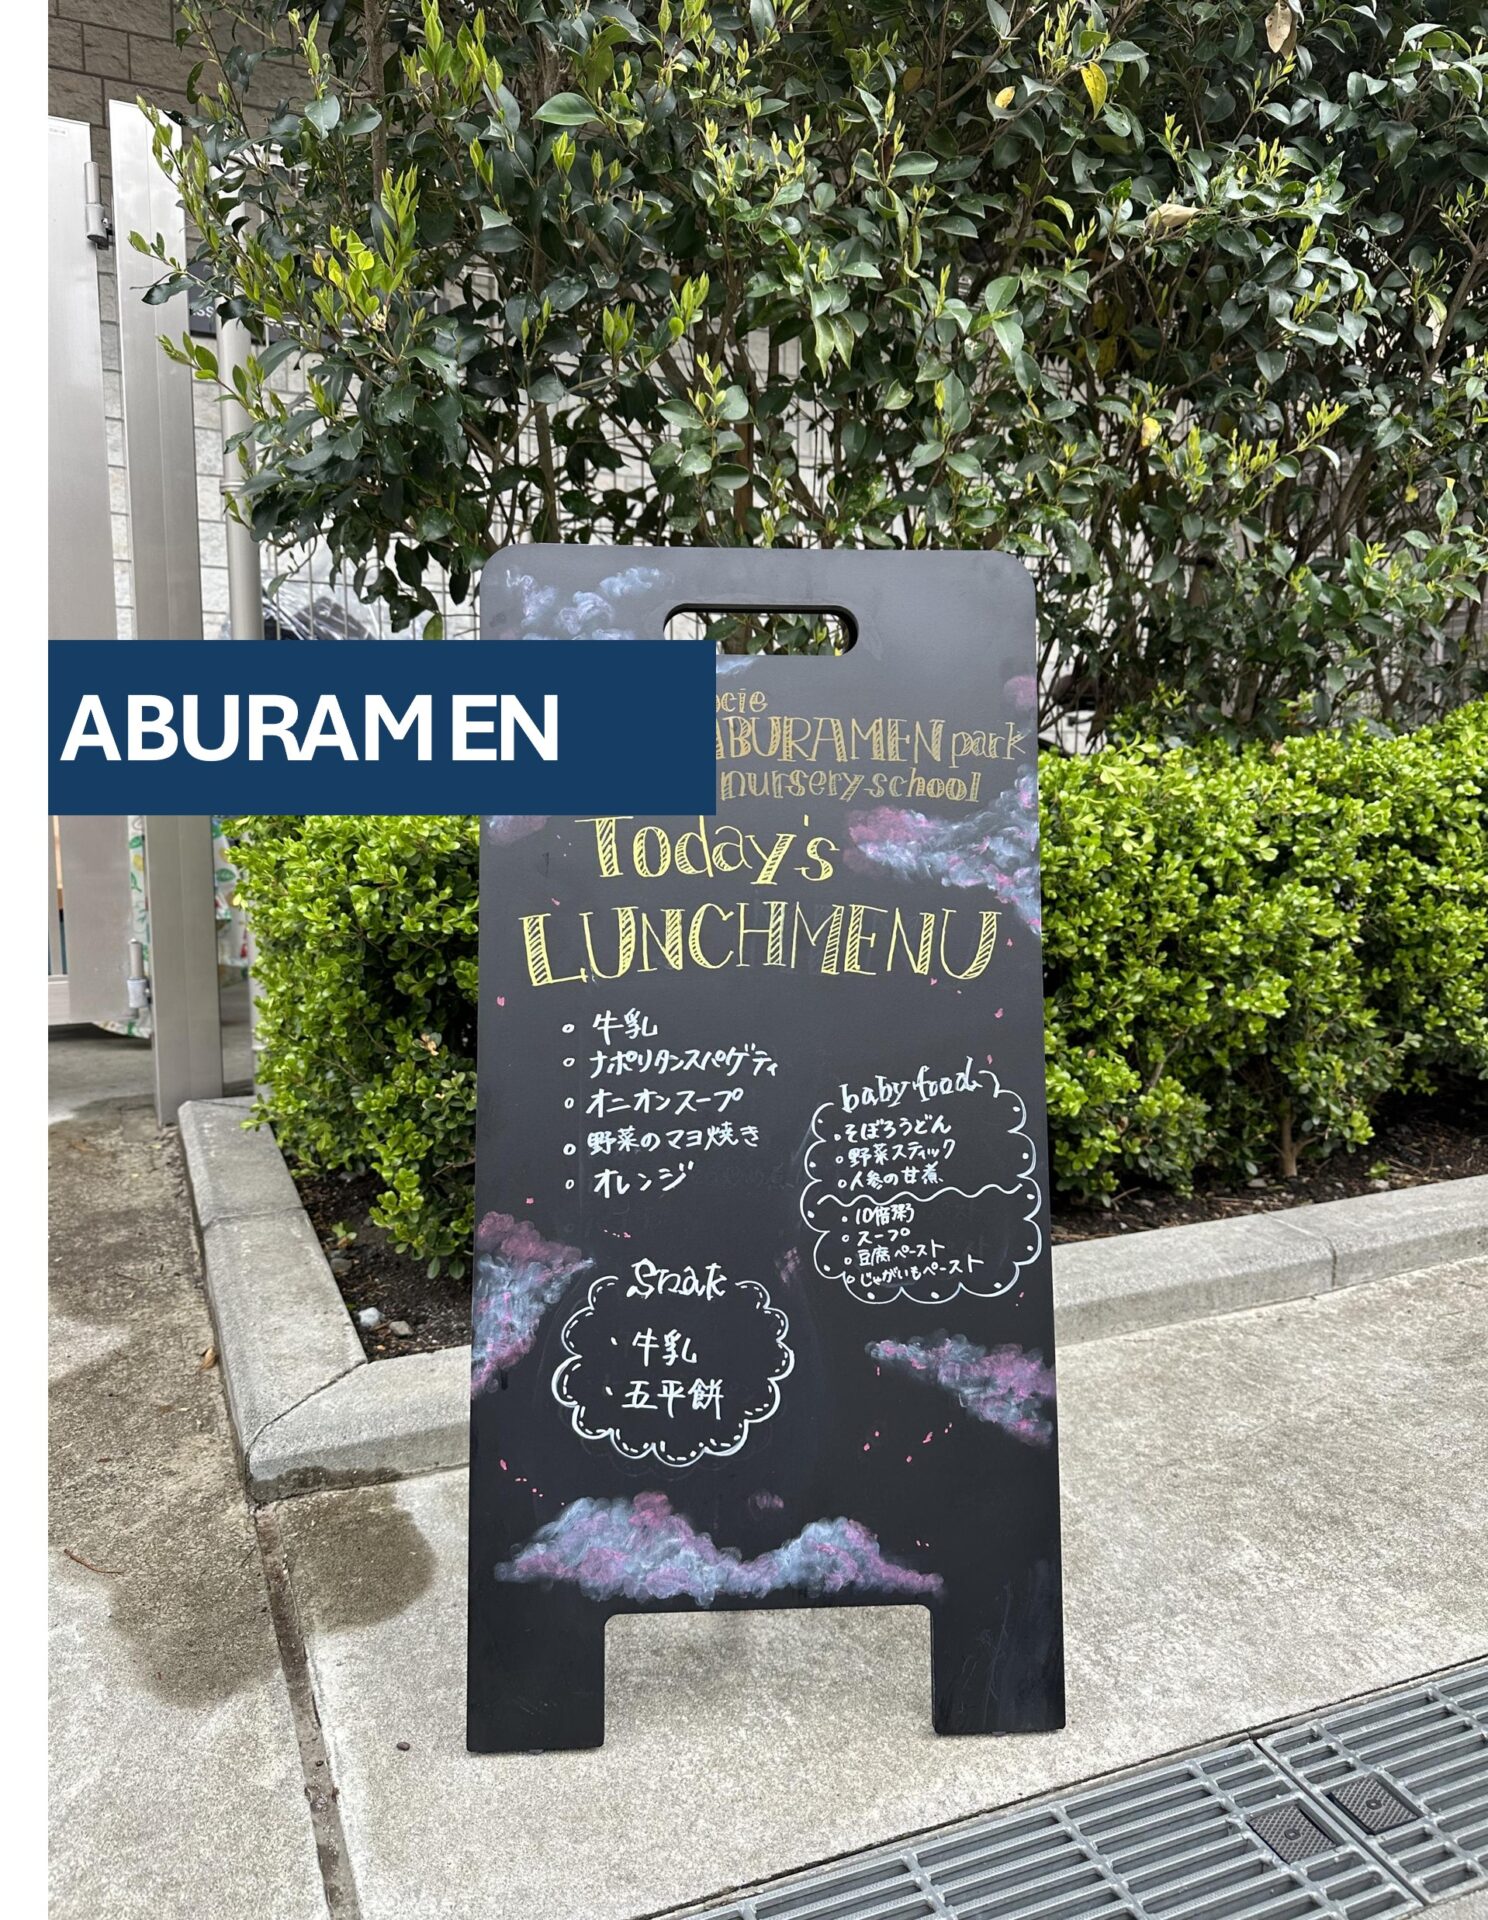 ABURAMEN
ocie
ABURAMEN park
nursery school
Today's
LUNCHMENU
○ 牛乳
○ ナポリタンスパゲティ
○ オニオンスープ
○ 野菜のマヨ焼き
○ オレンジ
baby food
・そぼろうどん
・野菜スティック
・人参の甘煮
・10倍粥
・スープ
・豆腐ペースト
・じゃがいもペースト
Snak
・牛乳
・五平餅